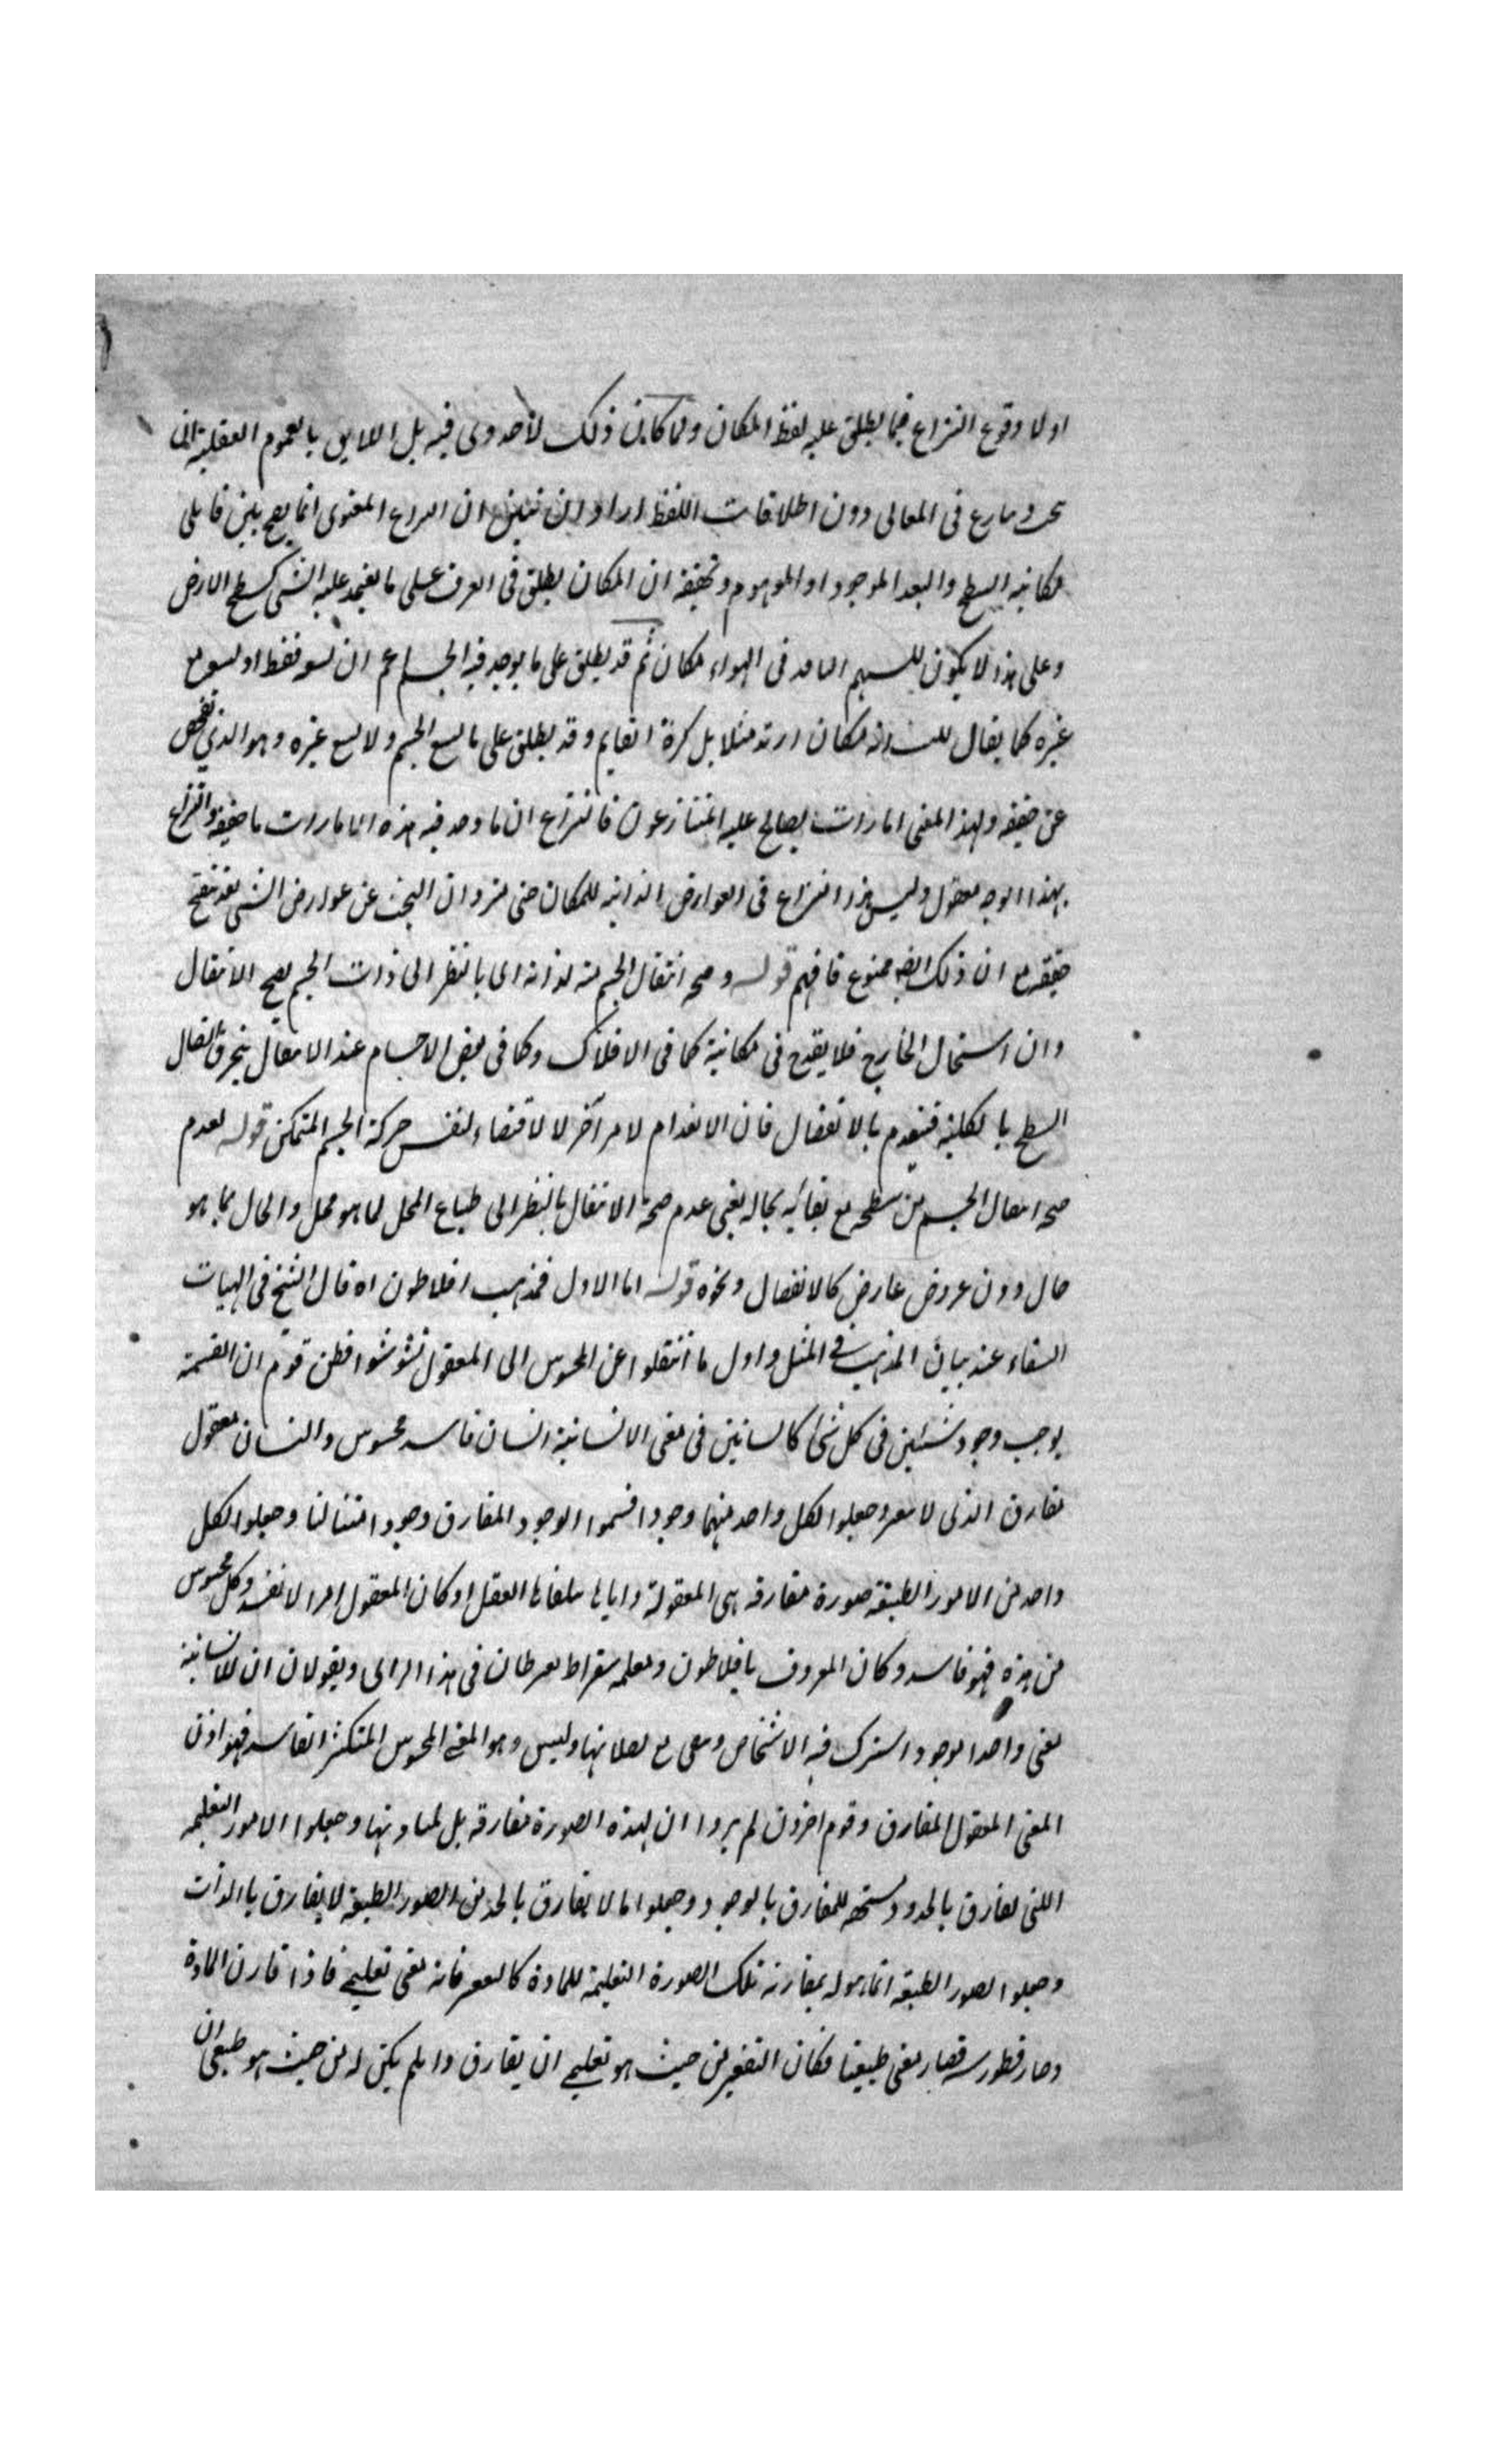 اولا وقوع النزاع فيما يطلق عليه لفظ المكان ولما كان ذلك لا جدوى فيه بل اللايق بالعلوم العقلية ان
في المعانى دون اطلاقات اللفظ اراد ان يتبين ان النزاع المعنوى انما يصح بين قايلى
مكانية السطح والبعد الموجود او الموهوم وتحقيقه ان المكان يطلق فى العرف على ما يعتمد عليه الشى كسطح الارض
وعلى هذا لا يكون للسهم النافذ فى الهواء مكان ثم قد يطلق على ما يوجد فيه الجسم اعم ان يسعه فقط او يسع مع
غيره كما يقال مكان زيد مثلا بل كرة العالم وقد يطلق على ما يسع الجسم ولا يسع غيره وهو الذى نفحص
عن حقيقته ولهذا المعنى امارات يصالح عليه المتنازعون فالنزاع ان ما وجد فيه هذه الامارات ما حقيقته والنزاع
بهذا الوجه معقول وليس هذا النزاع فى العوارض الذاتية للمكان حتى يرد ان البحث عن عوارض الشى بعد تنقح
حقيقته مع ان ذلك ايضا ممنوع فافهم قوله وصحة انتقال الجسم منه لذاته اى بالنظر الى ذات الجسم يصح الانتقال
وان استحال الخارج فلا يقدح فى مكانية كما فى الافلاك وكما فى بعض الاجسام عند الانتقال يتخرق اتصال
السطح بالكلية فينعدم بالانفصال فان الانعدام لامر آخر لا لاقتضاء نفس حركة الجسم المتمكن قوله لعدم
صحة انتقال الجسم من سطحه مع بقائه بحاله يعنى عدم صحة الانتقال بالنظر الى طباع المحل لما هو محل والحال بما هو
حال دون عروض عارض كالانفصال ونحوه قوله اما الاول فمذهب افلاطون اه قال الشيخ فى الهيات
الشفاء عند بيان المذهب فى المثل واول ما انتقلوا عن المحسوس الى المعقول تشوشوا فظن قوم ان القسمة
يوجب وجود شيئين فى كل شئ كانسانين فى معنى الانسانية انسان فاسد محسوس وانسان معقول
مفارق ابدى لا يتغير وجعلوا لكل واحد منهما وجودا فسموا الوجود المفارق وجودا مثاليا وجعلوا لكل
واحد من الامور الطبيعية صورة مفارقة هى المعقولة واياها يتلقاها العقل اذ كان المعقول امرا لا يفسد وكل محسوس
من هذه فهو فاسد وكان المعروف بافلاطون ومعلمه سقراط يفرطان فى هذا الراى ويقولان ان للانسانية
معنى واحدا موجودا يشترك فيه الاشخاص ويبقى مع بطلانها وليس وهو المعنى المحسوس المتكثر الفاسد فهو اذن
المعنى المعقول المفارق وقوم اخرون لم يروا ان لهذه الصورة مفارقة بل لمباديها وجعلوا الامور التعليمية
التى تفارق بالحدود مستحقة للمفارق بالوجود وجعلوا ما لا يفارق بالحد من الصور الطبيعية لا يفارق بالذات
وجعلوا الصور الطبيعية انما هو له بمقارنة تلك الصورة التعليمية للمادة كالتقعير فانه معنى تعليمى فاذا قارن المادة
وصار فطوسة فصار معنى طبيعيا فكان للتقعير من حيث هو تعليمى ان يفارق وان لم يكن له من حيث هو طبيعى ان